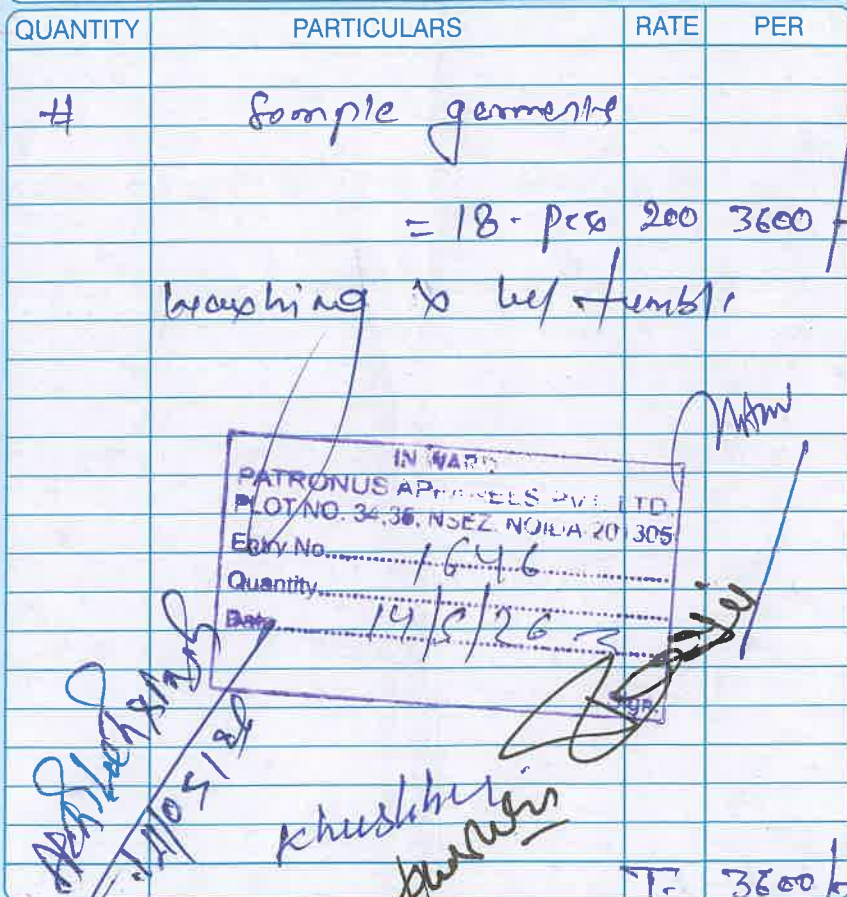 QUANTITY PARTICULARS RATE PER
# Sample garments
= 18 - pcs 200 3600/-
washing
IN WARD
PATRONUS APPARELS PVT. LTD.
PLOT NO. 34,36, NSEZ NOIDA 201305
Entry No. 1646
Quantity
Date 14/5/26
Sign.
Khushbu
T. 3600/-